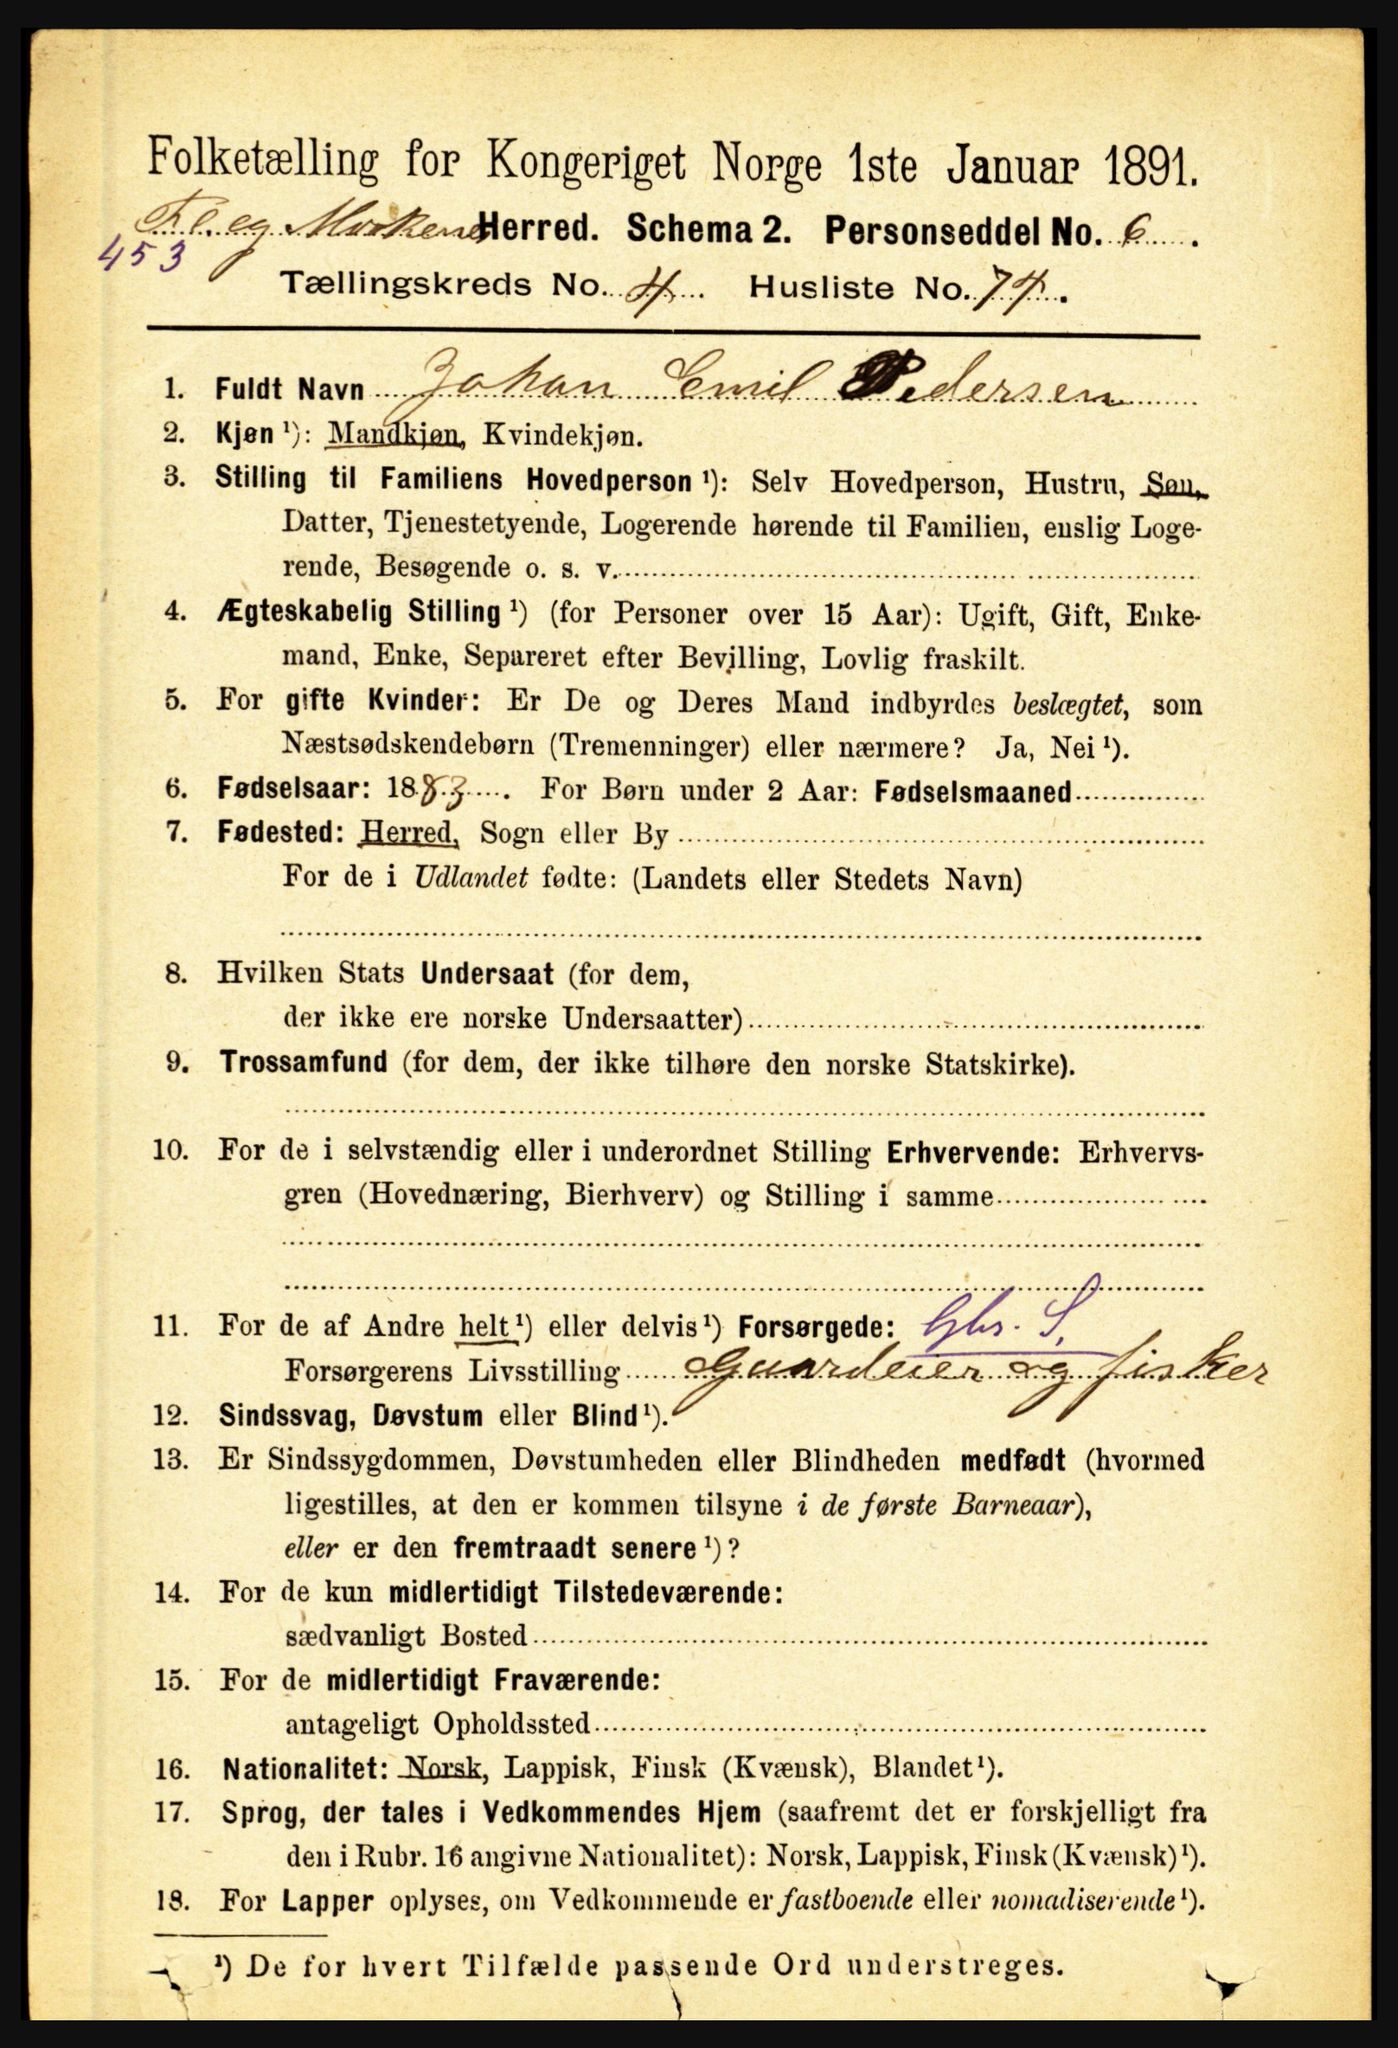 Folketælling for Kongeriget Norge 1ste Januar 1891.
Fl. og Moskenes Herred. Schema 2. Personseddel No. 6.
453
Tællingskreds No. 4. Husliste No. 74.
1. Fuldt Navn Johan Emil Pedersen
2. Kjøn ¹): Mandkjøn, Kvindekjøn.
3. Stilling til Familiens Hovedperson ¹): Selv Hovedperson, Hustru, Søn,
Datter, Tjenestetyende, Logerende hørende til Familien, enslig Loge-
rende, Besøgende o. s. v.
4. Ægteskabelig Stilling ¹) (for Personer over 15 Aar): Ugift, Gift, Enke-
mand, Enke, Separeret efter Bevilling, Lovlig fraskilt.
5. For gifte Kvinder: Er De og Deres Mand indbyrdes beslægtet, som
Næstsødskendebørn (Tremenninger) eller nærmere? Ja, Nei ¹).
6. Fødselsaar: 1883. For Børn under 2 Aar: Fødselsmaaned
7. Fødested: Herred, Sogn eller By
For de i Udlandet fødte: (Landets eller Stedets Navn)
8. Hvilken Stats Undersaat (for dem,
der ikke ere norske Undersaatter)
9. Trossamfund (for dem, der ikke tilhøre den norske Statskirke).
10. For de i selvstændig eller i underordnet Stilling Erhvervende: Erhvervs-
gren (Hovednæring, Bierhverv) og Stilling i samme
11. For de af Andre helt ¹) eller delvis ¹) Forsørgede: Gbr. S.
Forsørgerens Livsstilling Gaardeier og fisker
12. Sindssvag, Døvstum eller Blind ¹).
13. Er Sindssygdommen, Døvstumheden eller Blindheden medfødt (hvormed
ligestilles, at den er kommen tilsyne i de første Barneaar),
eller er den fremtraadt senere ¹)?
14. For de kun midlertidigt Tilstedeværende:
sædvanligt Bosted
15. For de midlertidigt Fraværende:
antageligt Opholdssted
16. Nationalitet: Norsk, Lappisk, Finsk (Kvænsk), Blandet ¹).
17. Sprog, der tales i Vedkommendes Hjem (saafremt det er forskjelligt fra
den i Rubr. 16 angivne Nationalitet): Norsk, Lappisk, Finsk (Kvænsk) ¹).
18. For Lapper oplyses, om Vedkommende er fastboende eller nomadiserende ¹).
¹) De for hvert Tilfælde passende Ord understreges.